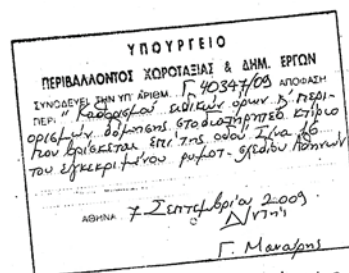 ΥΠΟΥΡΓΕΙΟ
ΠΕΡΙΒΑΛΛΟΝΤΟΣ ΧΩΡΟΤΑΞΙΑΣ & ΔΗΜ. ΕΡΓΩΝ
ΣΥΝΟΔΕΥΕΙ ΤΗΝ ΥΠ' ΑΡΙΘΜ. Γ 40347/09 ΑΠΟΦΑΣΗ
ΠΕΡΙ " Καθορισμού ειδικών όρων & περι-
ορισμών δόμησης στο διατηρητέο κτίριο
που βρίσκεται επί της οδού Σίνα 16
του εγκεκριμένου ρυμοτ. σχεδίου Αθηνών
ΑΘΗΝΑ 7 Σεπτεμβρίου 2009
Δ/ντής